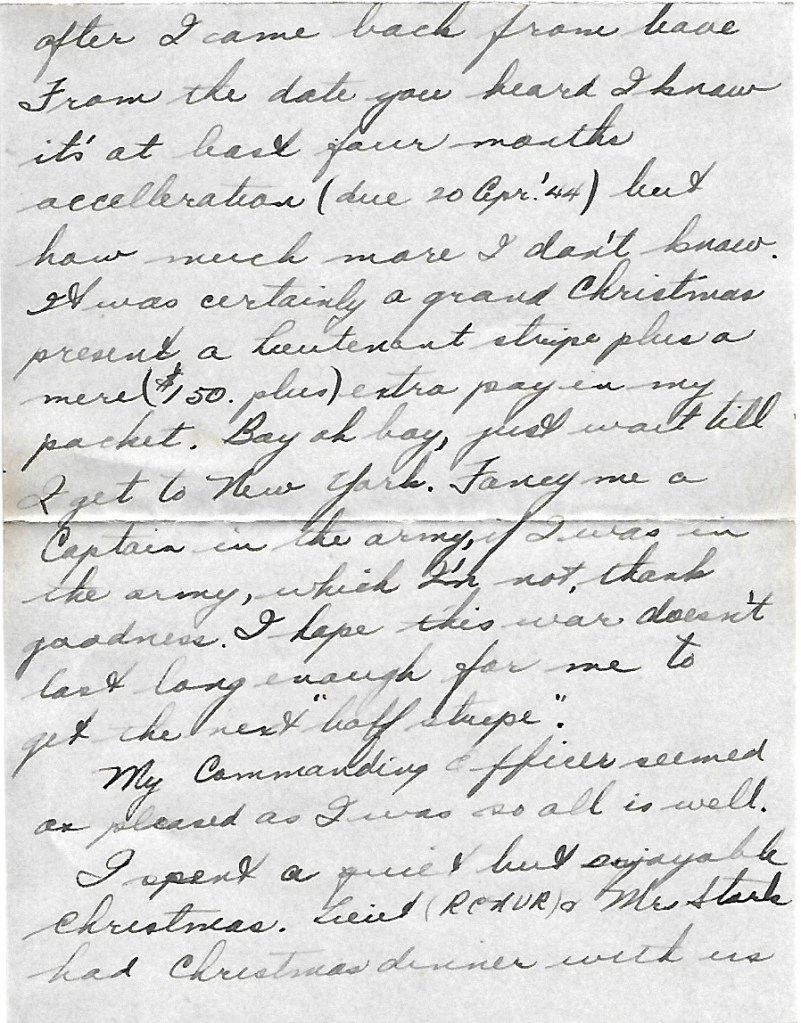 after I came back from leave
From the date you heard I know
it's at least four months
accelleration (due 20 Apr. '44) but
how much more I don't know.
It was certainly a grand Christmas
present, a Lieutenant stripe plus a
mere ($150. plus) extra pay in my
pocket. Boy oh boy, just wait till
I get to New York. Fancy me a
Captain in the army, if I was in
the army, which I'm not, thank
goodness. I hope this war doesn't
last long enough for me to
get the next "half stripe".
My Commanding Officer seemed
as pleased as I was so all is well.
I spent a quiet but enjoyable
Christmas. Lieut (RCNVR) & Mrs Stark
had Christmas dinner with us